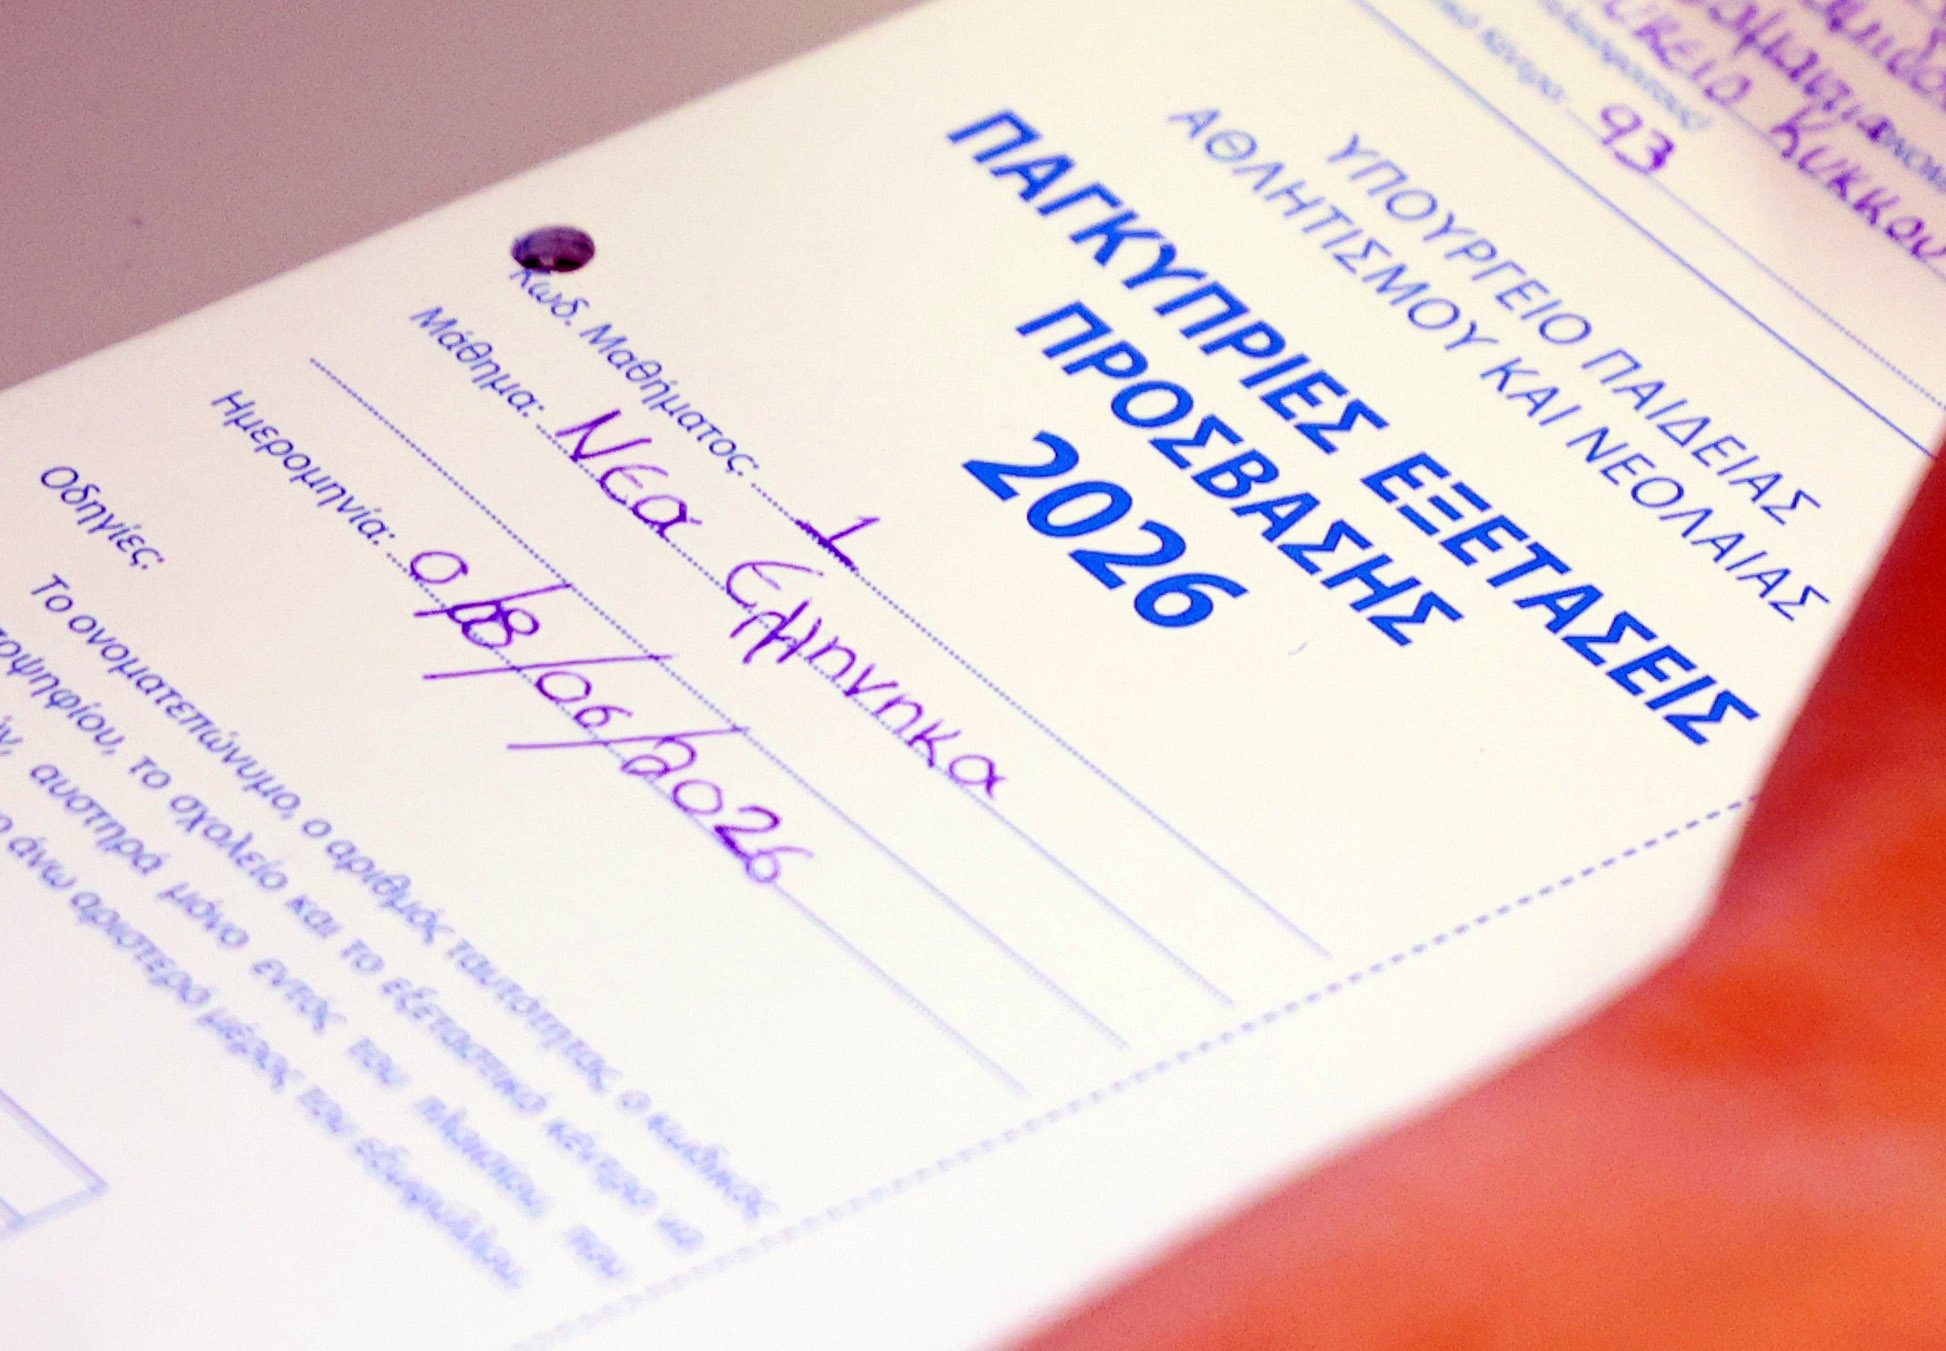 Λυκειο Κυκκου
93
ΥΠΟΥΡΓΕΙΟ ΠΑΙΔΕΙΑΣ
ΑΘΛΗΤΙΣΜΟΥ ΚΑΙ ΝΕΟΛΑΙΑΣ
ΠΑΓΚΥΠΡΙΕΣ ΕΞΕΤΑΣΕΙΣ
ΠΡΟΣΒΑΣΗΣ
2026
Κωδ. Μαθήματος: 1
Μάθημα: Νεα Ελληνηκα
Ημερομηνία: 08/06/2026
Οδηγίες:
Το ονοματεπώνυμο, ο αριθμός ταυτότητας, ο κωδικός
υποψηφίου, το σχολείο και το εξεταστικό κέντρο να
αυστηρά μόνο εντός του πλαισίου που
άνω αριστερό μέρος του εξωφύλλου.